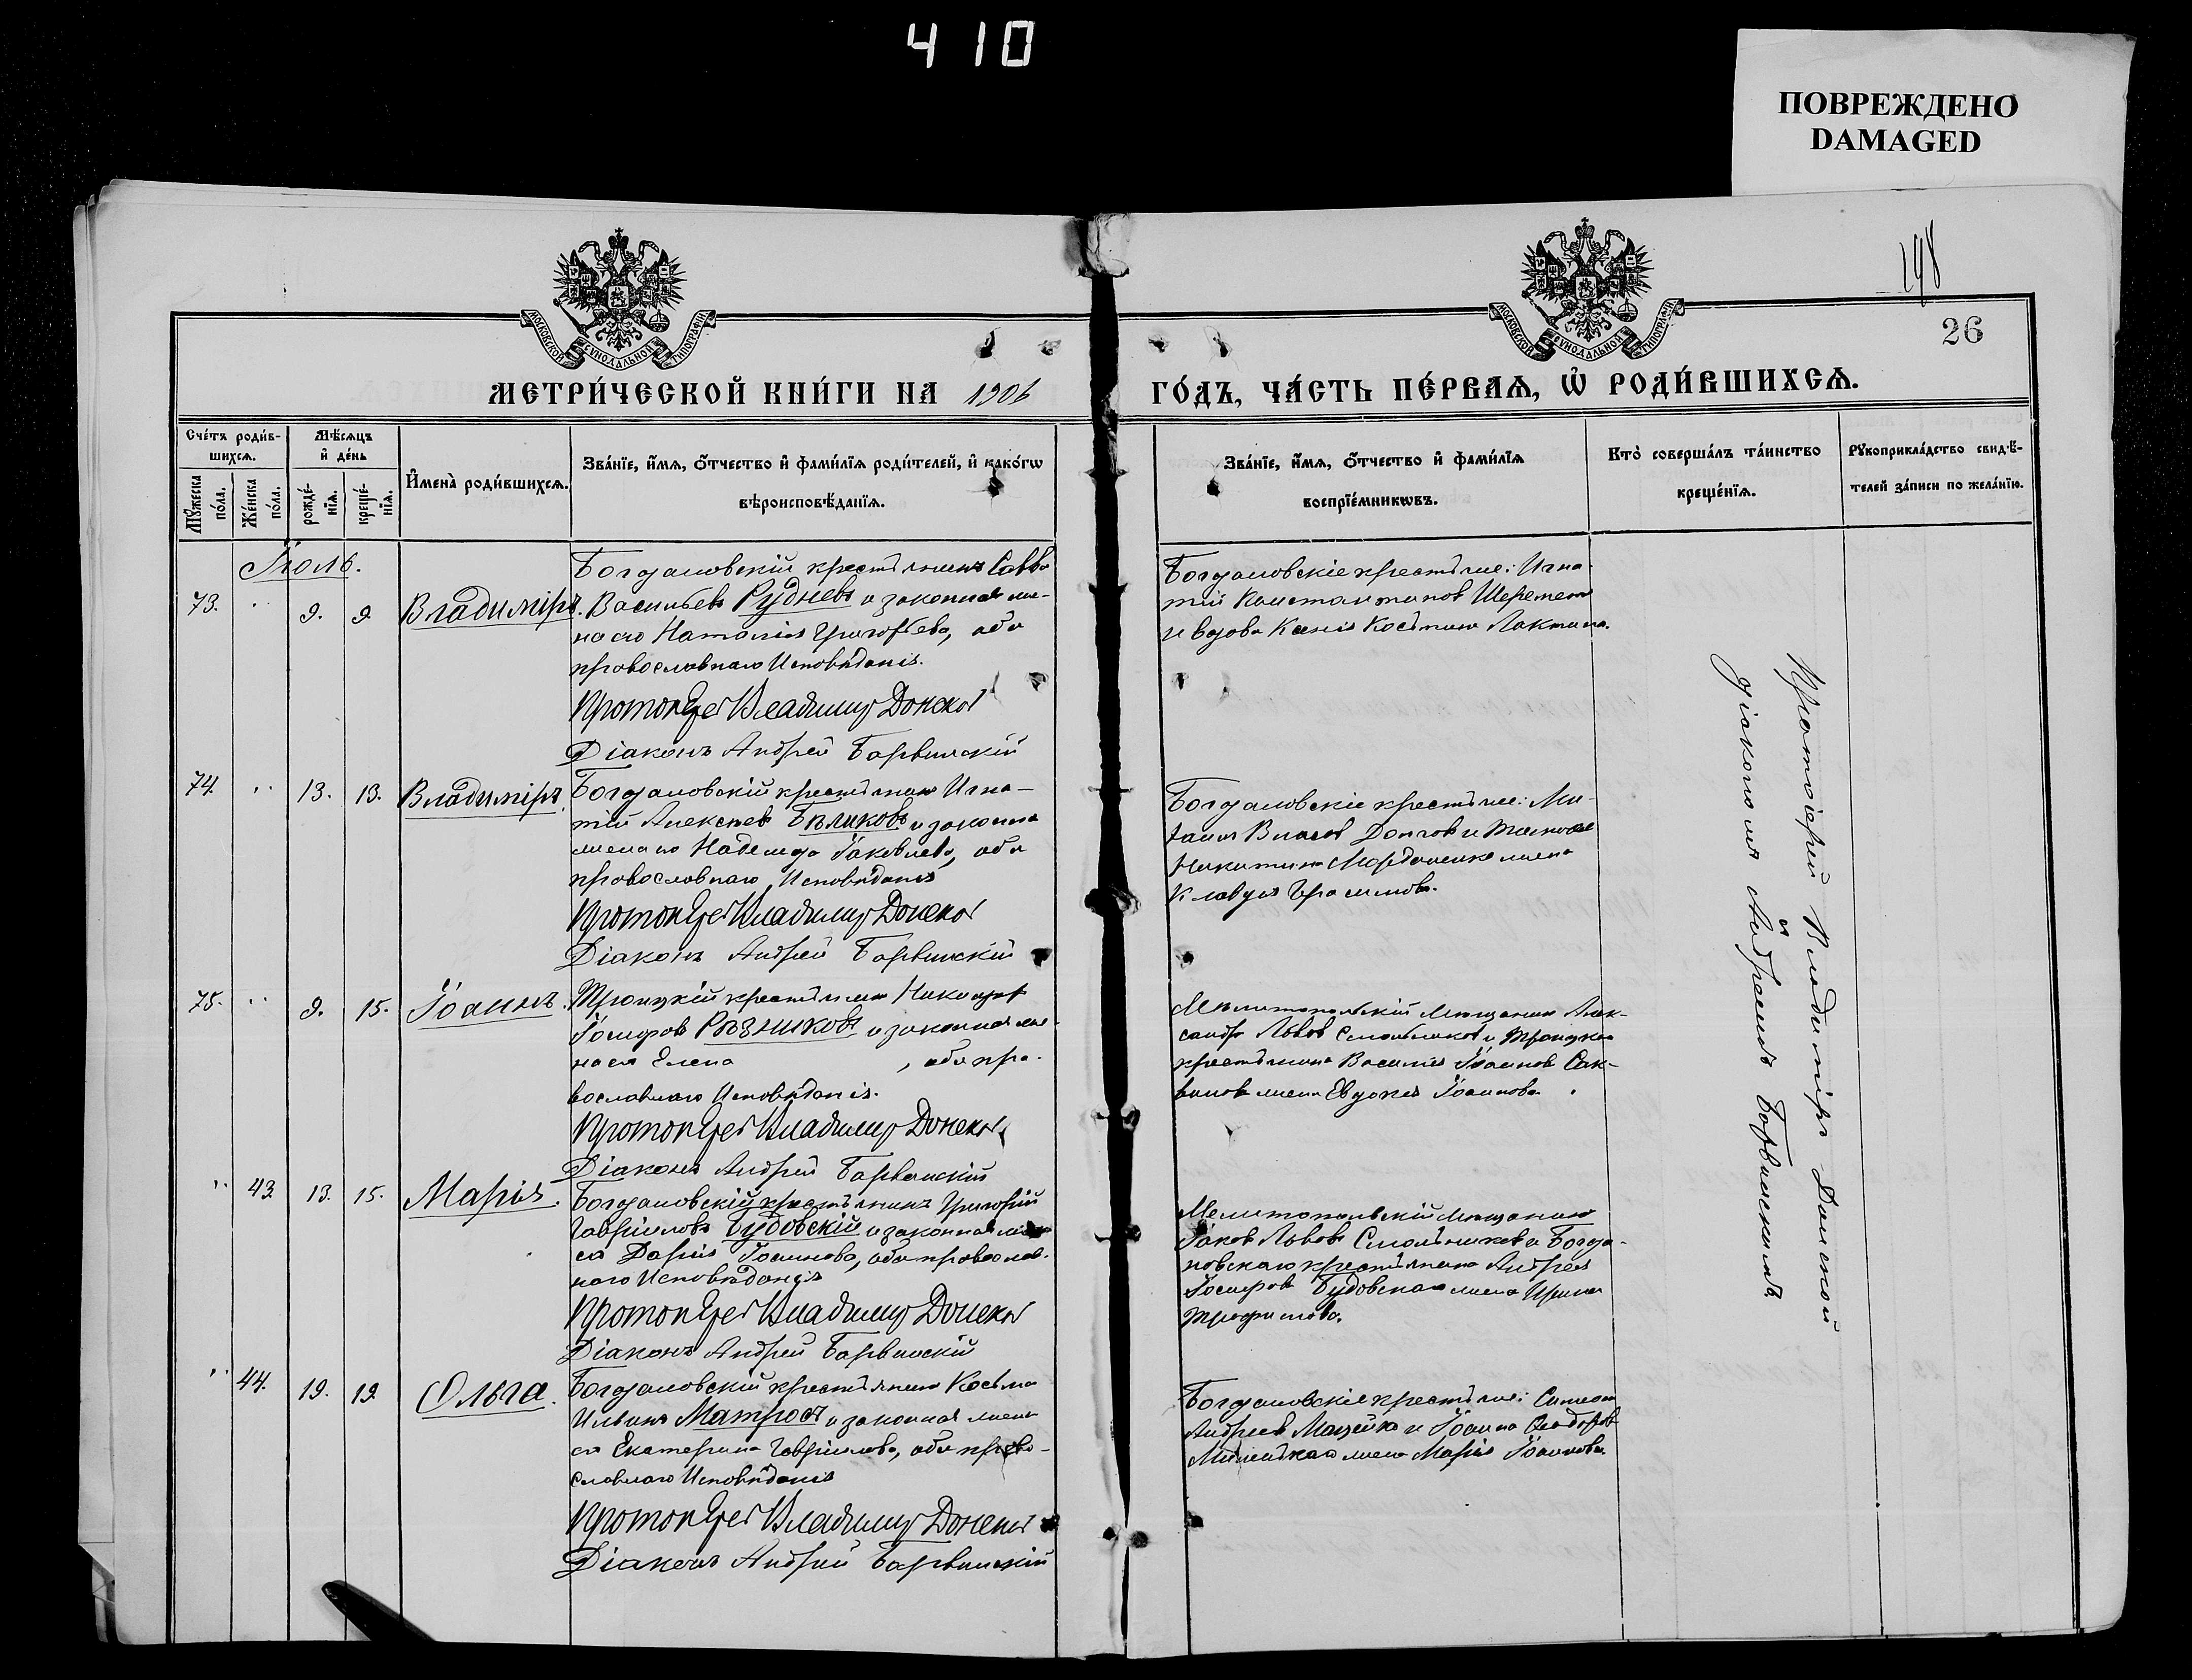 410
ПОВРЕЖДЕНО
DAMAGED
198
26
МОСКОВСКОЙ СѴНОДАЛЬНОЙ ТИПОГРАФІИ
МОСКОВСКОЙ СѴНОДАЛЬНОЙ ТИПОГРАФІИ
МЕТРИ́ЧЕСКОЙ КНИ́ГИ НА 1906 ГО́ДЪ, ЧА́СТЬ ПЕ́РВАѦ, Ѡ҆ РОДИ́ВШИХСѦ.
Сче́тъ роди́в-
шихсѧ.
Мѣ́сѧцъ
и҆ де́нь
Мꙋ́жеска по́ла.
Же́нска по́ла.
рожде́-
нїѧ.
креще́-
нїѧ.
И҆мена̀ роди́вшихсѧ.
Зва́нїе, и҆́мѧ, ѻ҆́тчество и҆ фами́лїѧ роди́телей, и҆ како́гѡ
вѣроисповѣ́данїѧ.
Зва́нїе, и҆́мѧ, ѻ҆́тчество и҆ фами́лїѧ
воспрїе́мникѡвъ.
Кто̀ соверша́лъ та́инство
креще́нїѧ.
Рꙋкоприкла́дство свидѣ́-
телей за́писи по жела́нїю.
Іюль.
73. " 9. 9. Владиміръ.
Богдановскій крестьянинъ Савва
Васильевъ Рудневъ и законная же-
на его Наталія Григорьева, оба
православнаго Исповѣданія.
Протоіерей Владимир Донской
Діаконъ Андрей Барвинскій
Богдановскіе крестьяне: Игна-
тій Константинов Шеремет
и вдова Ксенія Лактина.
74. " 13. 13. Владиміръ.
Богдановскій крестьянин Игна-
тій Алексѣев Бѣликовъ и законна
жена его Надежда Іаковлева, оба
православнаго Исповѣданія
Протоіерей Владимир Донской
Діаконъ Андрей Барвинскій
Богдановскіе крестьяне: Ми-
хаил Власов Долгов и
Никитина жена
Клавдія Герасимова.
75. " 9. 15. Іоаннъ.
Троицкій крестьянин
Іосифов Рѣзниковъ и законная же-
на его Елена , оба пра-
вославнаго Исповѣданія.
Протоіерей Владимир Донской
Діаконъ Андрей Барвинскій
Мелитопольскій мѣщанин Алек-
сандр Львов и Троицкаго
крестьянина Василія Іоаннов Сак-
жена Евдокія Іоаннова.
" 43. 13. 15. Марія.
Богдановскій крестьянинъ Григорій
Гавріиловъ Будовскій и законная жена
его Дарія Іоаннова, оба православ-
наго Исповѣданія
Протоіерей Владимир Донской
Діаконъ Андрей Барвинскій
Мелитопольскій мѣщанин
Іаков Львовъ и Богда-
новскаго крестьянина Андрея
Іосифов Будовскаго жена Ирина
Трофимова.
" 44. 19. 19. Ольга.
Богдановскій крестьянин Косьма
Ильинъ Матросъ и законная жена
его Екатерина Гавріилова, оба право-
славнаго Исповѣданія
Протоіерей Владимир Донской
Діаконъ Андрей Барвинскій
Богдановскіе крестьяне: Симеон
Андреев Мацейко и Іоанна Ѳеодоров
жена Марія Іоаннова.
Протоіерей Владиміръ Донской
и
діакономъ Андреемъ Барвинскимъ